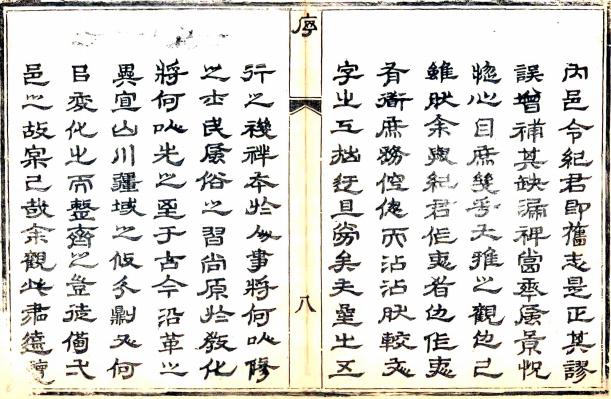 內邑令紀君即舊志是正其謬
誤增補其缺漏裨當風景怳
惚心目庶幾乎大雅之觀也已
雖然余與紀君作吏者也作吏
有衙庶務倥傯而沾沾然較文
字之工拙迂且勞矣夫星土五
序
八
行之禨祥本於人事將何以修
之士民風俗之習尚原於敎化
將何以先之至于古今沿革之
異宜山川疆域之攸分又何
以變化之而整齊之豈徒備弌
邑之故案已哉余觀此